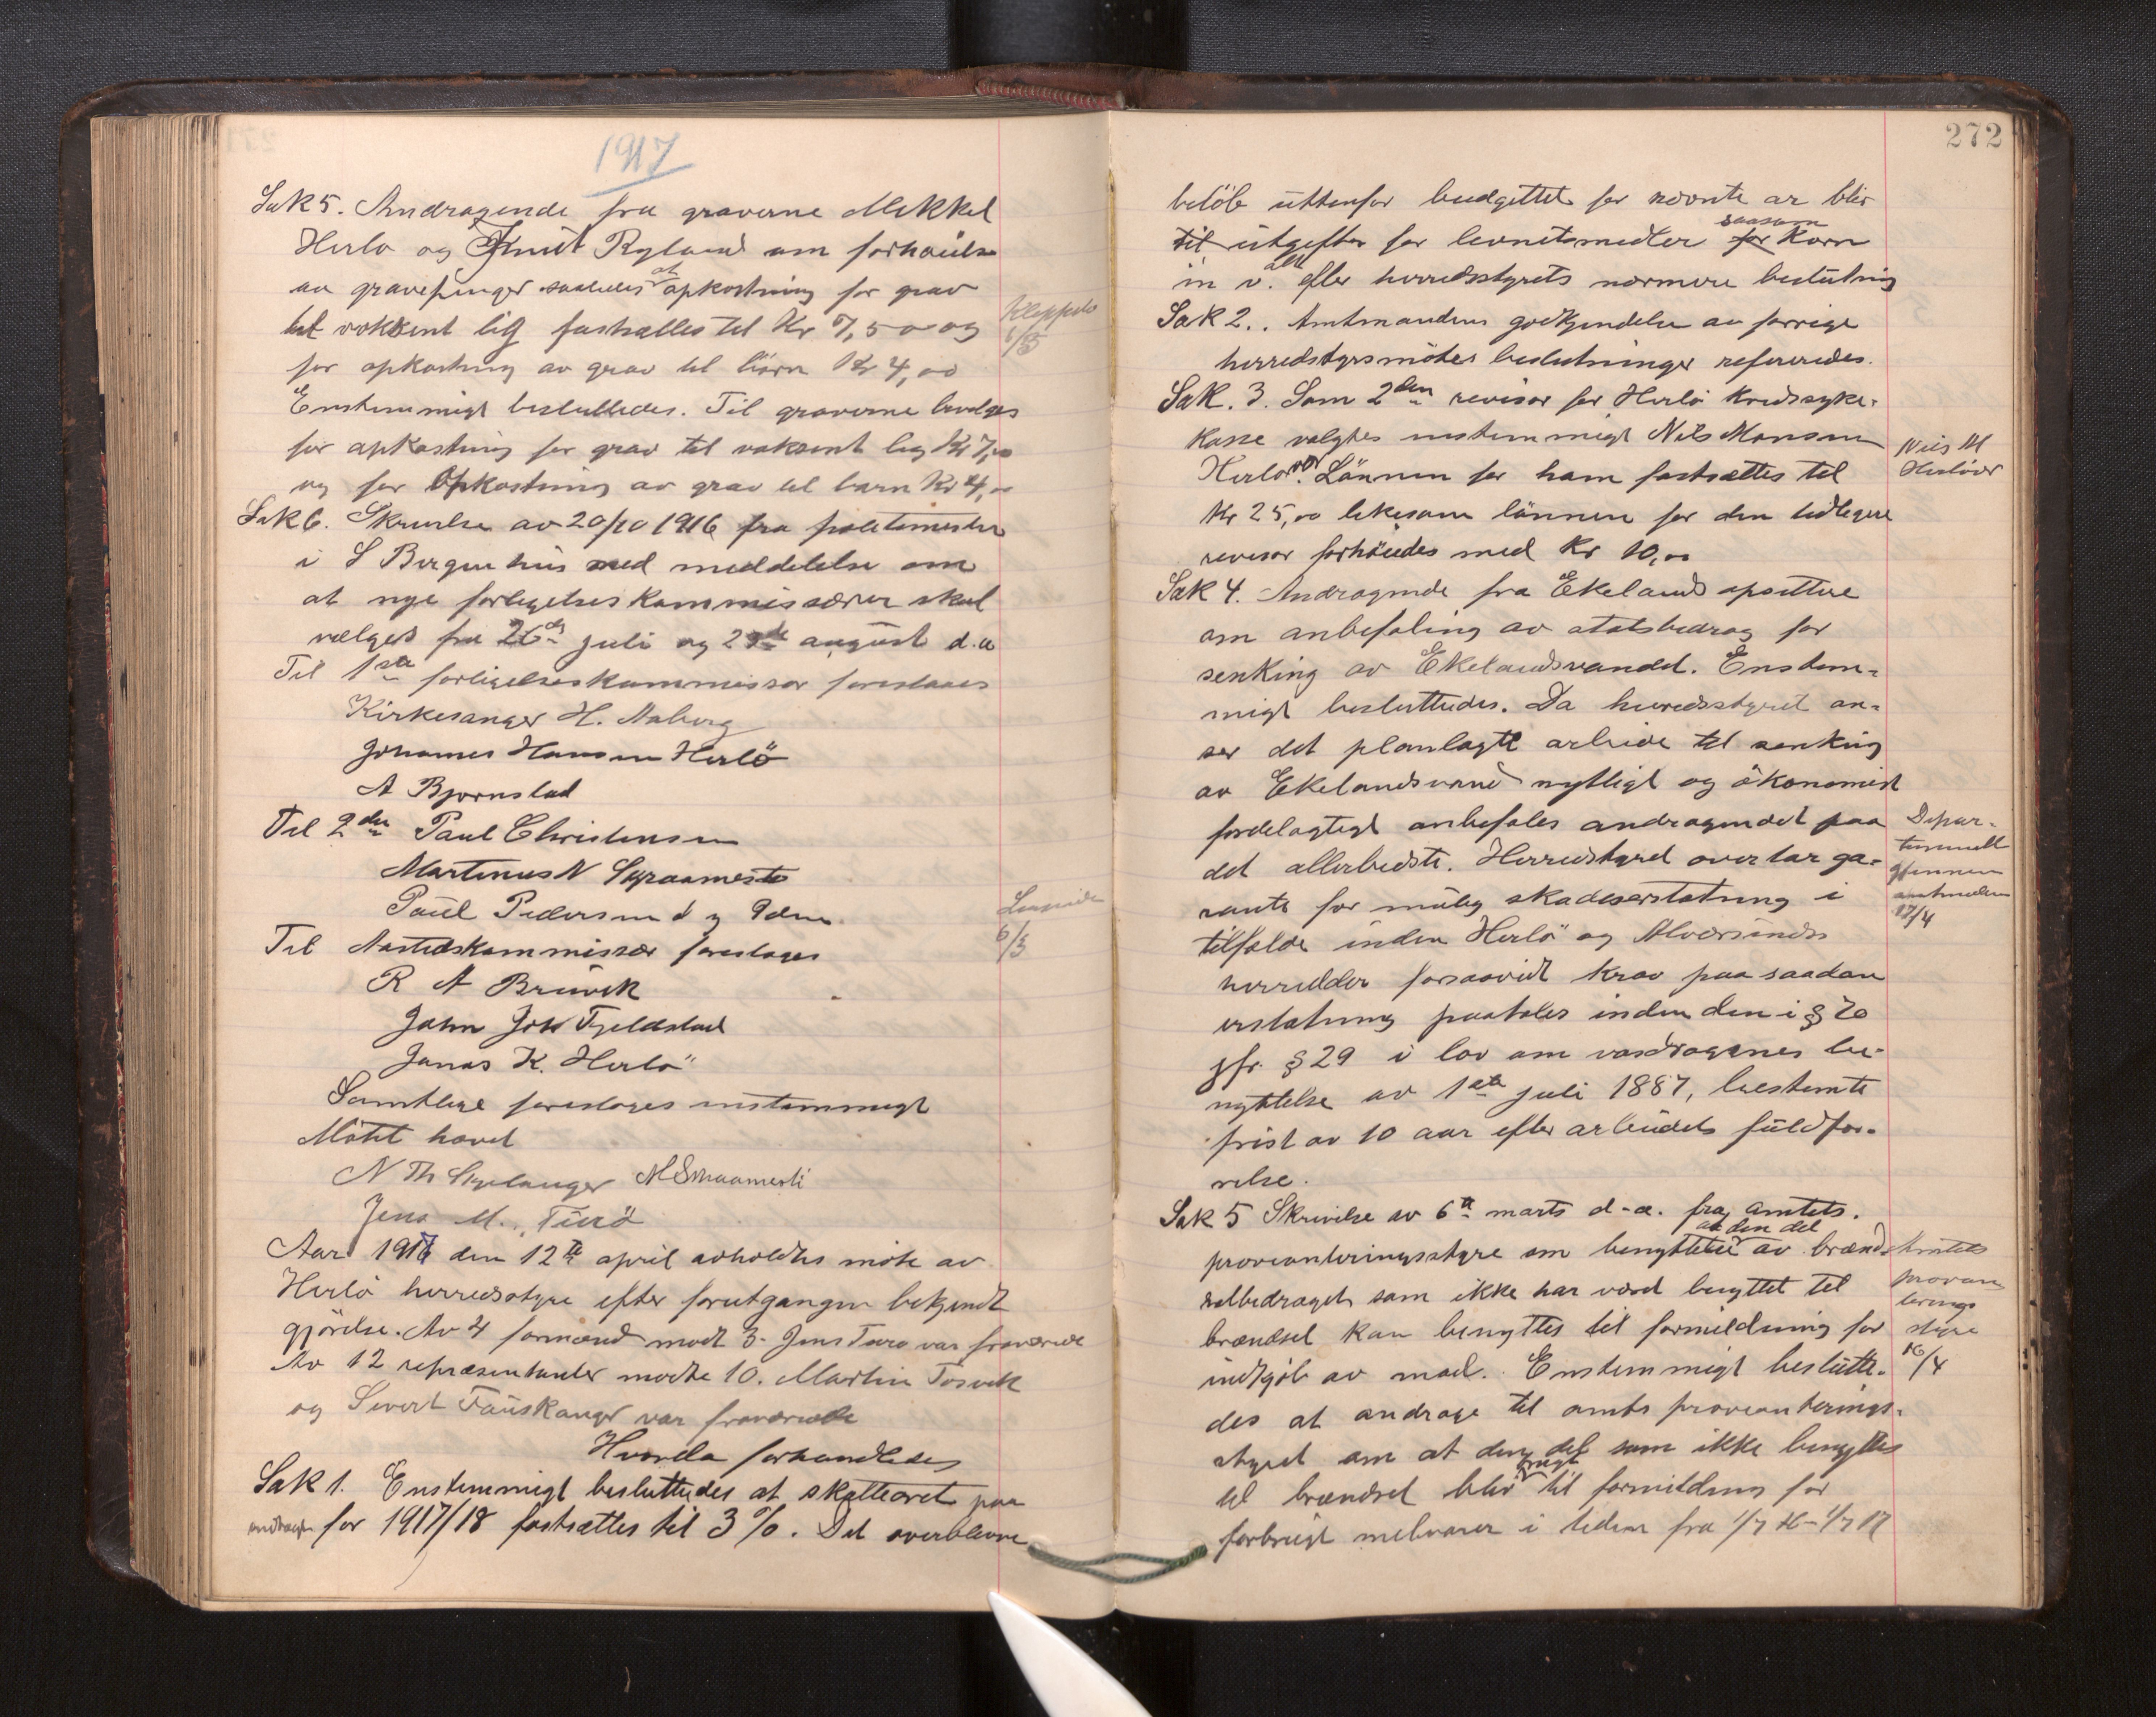 1917
Sak 5. Andragende fra graverne Mikkel
Herlo og Knut Ryland om forhöielse
av gravepenger saaledes at opkastning for grav
til voksent lig fastsættes til Kr 7,50 og
for opkastning av grav til börn Kr 4,00
Enstemmigt besluttedes. Til graverne bevilges
for opkastning for grav til voksent lig Kr 7,00
og for Opkastning av grav til barn Kr 4,00
Kleppstö
6/5
Sak 6. Skrivelse av 20/10 1916 fra politimester
i S Bergenhus med meddelelse om
at nye forligelseskommissærer skal
vælges fra 26de juli og 2 august d.a
Til 1ste forligelseskommissær foreslaaes
Kirkesanger H. Aaberg
Johannes Hansen Herlö
A Bjørnstad
Til 2den Paul Christensen
Martinus N Skraamestö
Paul Pedersen
Til Aastedskommissær foreslages
6/5
R A Breivik
John Joh Fjeldstad
Jonas K. Herlö
Samtlige foreslages enstemmigt
Mötet hævet
N Th Skjelanger M Skraamesti
Jens M. Turö
Aar 1917 den 12te april avholdtes möte av
Herlö herredsstyre efter forutgangen bekjendt
gjörelse. Av 4 formænd mödt 3. Jens Turö var fraværende
Av 12 repræsentanter mödte 10. Martin Tosvik
og Sivert Fauskanger var fraværende
Hvorda forhandledes
Sak 1. Enstemmigt besluttedes at skatteöret paa
indtægt for 1917/18 fastsættes til 3 %. Det overblevne
272
belöb uttenfor budgettet for nævnte ar blir
til utgifter for levnetsmidler saasom for Korn
m v. alt efter herredsstyrets nærmere beslutning
Sak 2.. Amtmandens godkjendelse av forrige
herredstyrsmötes beslutninger refereredes.
Sak. 3. Som 2den revisor for Herlö Kredssyke-
kasse valgtes enstemmigt Nils Monsen
Herlövær. Lönnen for ham fastsættes til
Kr 25,00 likesom lönnen for den tidligere
revisor forhöiedes med Kr 10,00
Nils M
Herlövær
Sak 4. Andragende fra Ekelands opsittere
om anbefaling av statsbedrag for
senking av Ekelandsvandet. Enstem-
migt besluttedes. Da herredsstyret an-
ser det planlagte arbeide til senking
av Ekelandsvand nyttigt og ökonomisk
fordelagtigt anbefales andragendet paa
det allerbedste. Herredstyret overtar ga-
ranti for mulig skadeserstatning i
tilfælde inden Herlö og Alversunds
herredder forsaavidt krav paa saadan
erstatning paatales inden den i § 20
jfr. § 29 i lov om vasdragenes be-
nyttelse av 1ste juli 1887, bestemte
frist av 10 aar efter arbeidets fuldför-
relse.
Depar-
tementet
gjennem
amtmanden
17/4
Sak 5 Skrivelse av 6te marts d-a. fra amtets.
provianteringsstyre om benyttelse av den del av brænd-
selbedraget som ikke har været benyttet til
brændsel kan benyttes til formildning for
indkjöb av mad. Enstemmigt beslutte-
des at andrage til amts provianterings-
styret om at den del som ikke benyttes
til brændsel blir brugt til formildning for
forbrugt melvarer i tiden fra 1/7 16 - 1/7 17
Amtets
provian
terings
styre
16/4